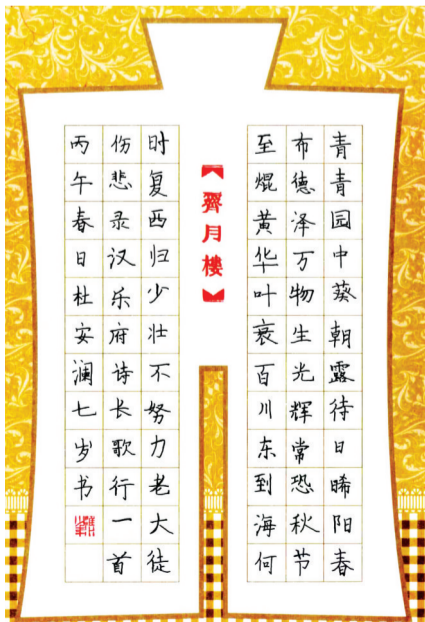 青青园中葵朝露待日晞阳春
布德泽万物生光辉常恐秋节
至焜黄华叶衰百川东到海何
【霽月樓】
时复西归少壮不努力老大徒
伤悲录汉乐府诗长歌行一首
丙午春日杜安澜七岁书